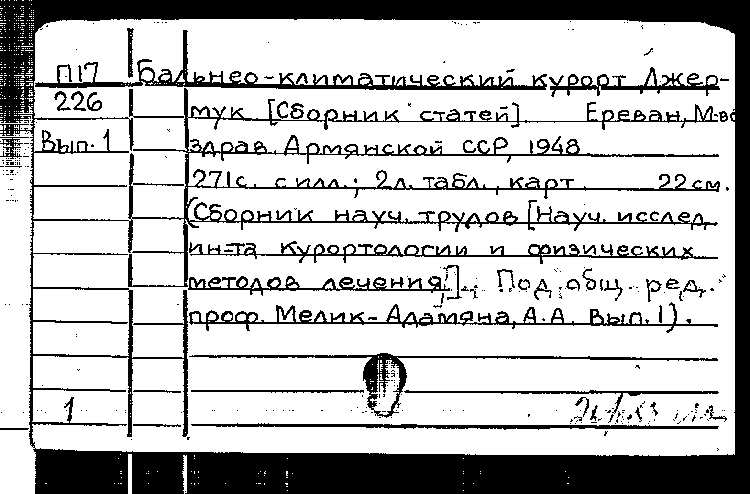 П17 Бальнео-климатический курорт Джер-
226 мук [Сборник статей]. Ереван, М-во
Вып. 1 здрав. Армянской ССР, 1948
271с. с илл.; 2л. табл., карт. 22 см.
(Сборник науч. трудов [Науч. исслед.
ин-та курортологии и физических
методов лечения]. Под общ. ред.
проф. Мелик-Адамяна, А.А. Вып. 1).
1